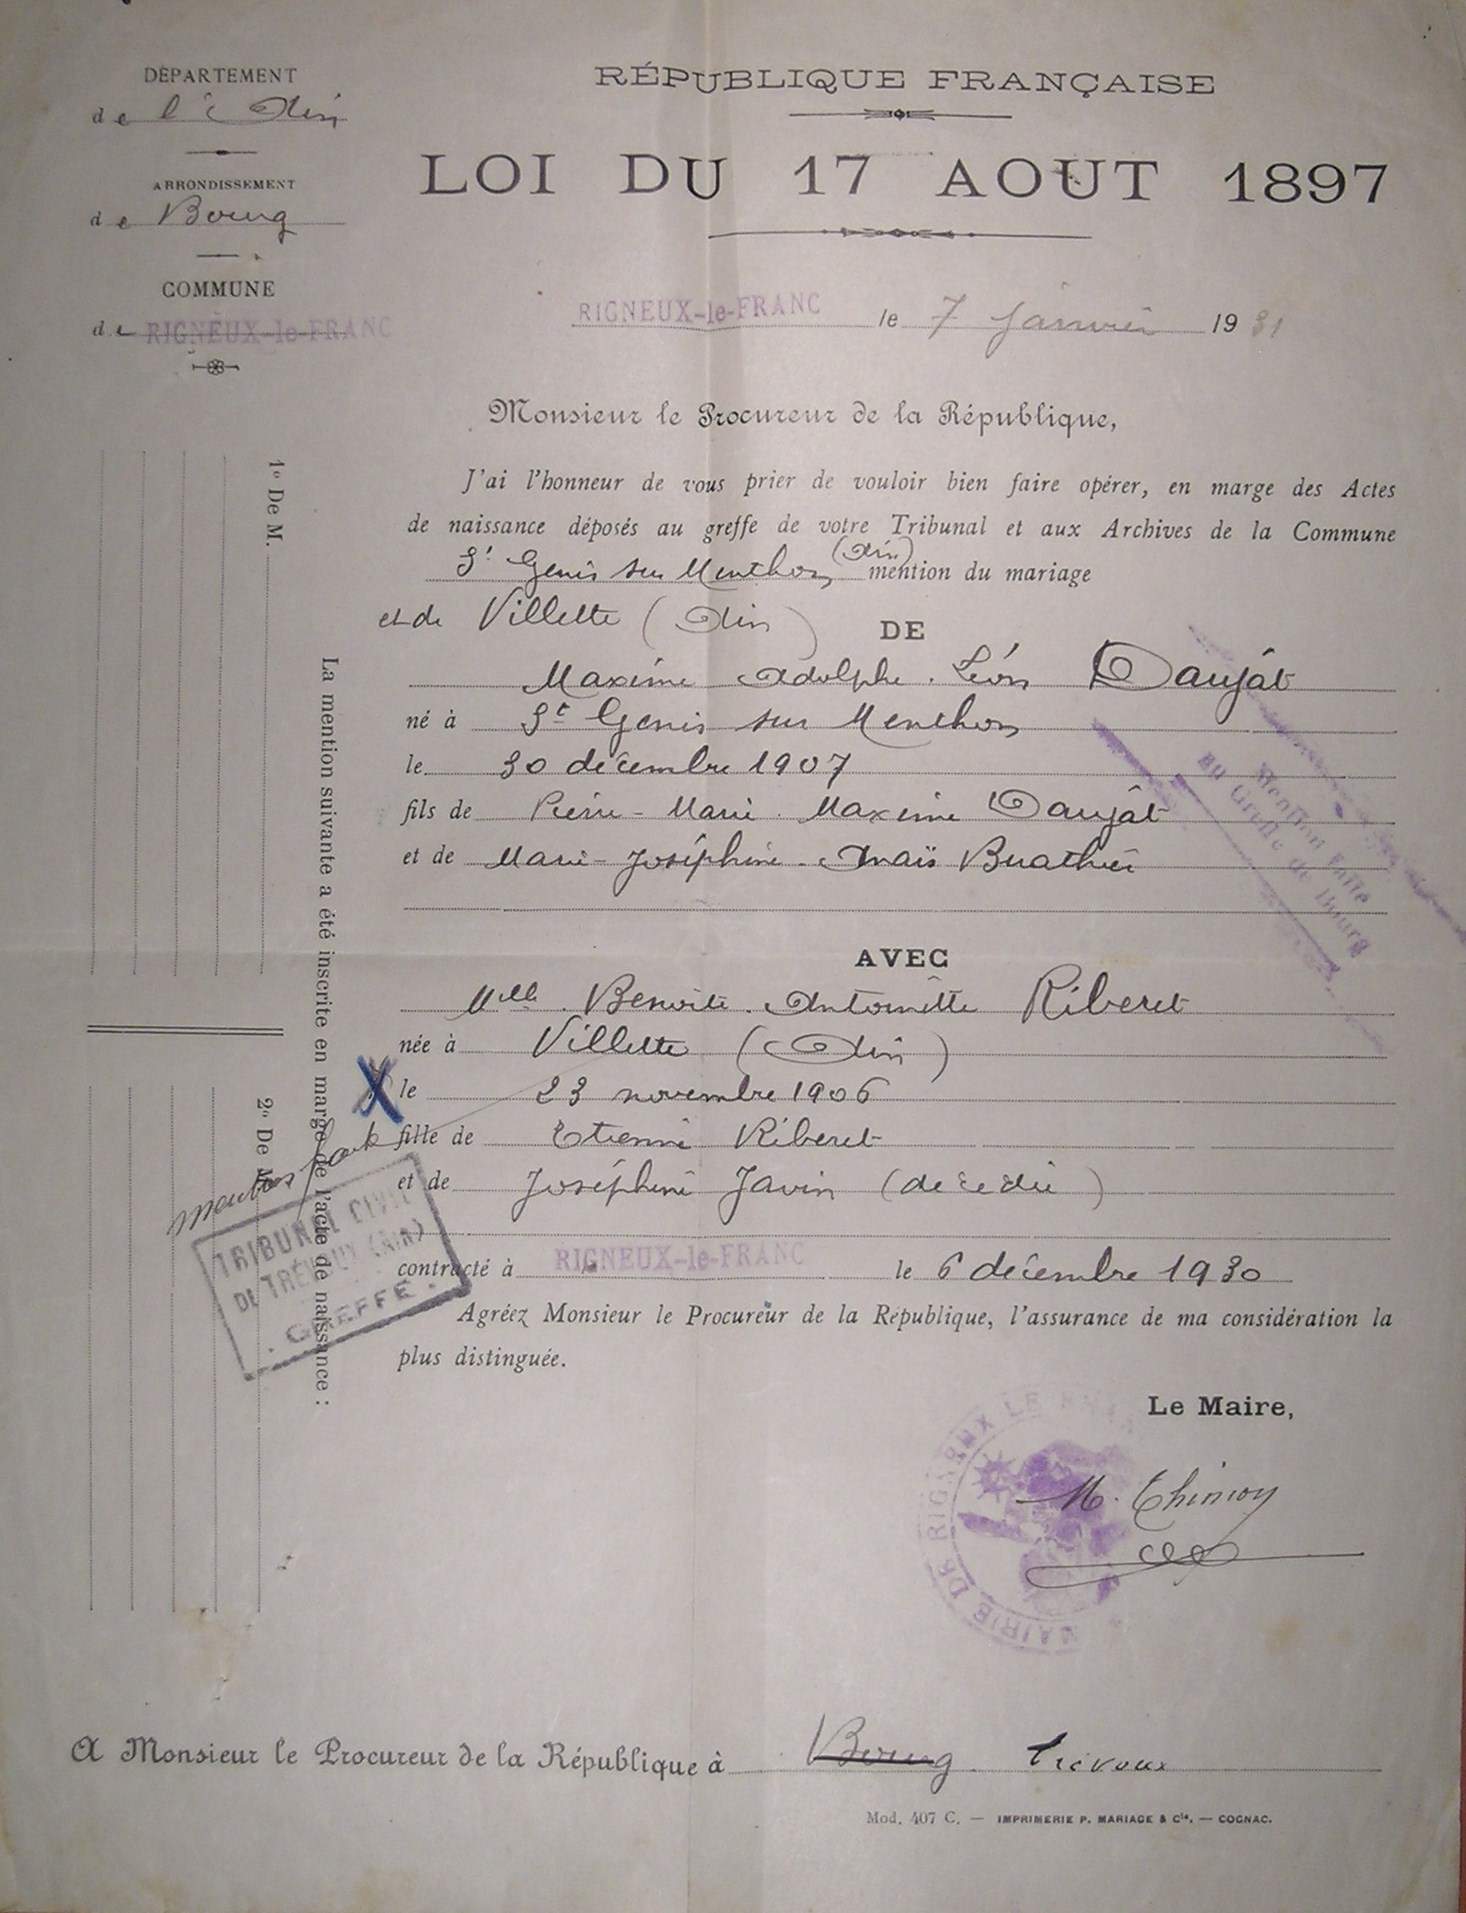 DÉPARTEMENT
de l'Ain
ARRONDISSEMENT
de Bourg
COMMUNE
de RIGNEUX-le-FRANC
RÉPUBLIQUE FRANÇAISE
LOI DU 17 AOUT 1897
RIGNEUX-le-FRANC le 7 janvier 1931
Monsieur le Procureur de la République,
J'ai l'honneur de vous prier de vouloir bien faire opérer, en marge des Actes
de naissance déposés au greffe de votre Tribunal et aux Archives de la Commune
St Genis sur Menthon (Ain) mention du mariage
et de Villette (Ain)
DE
Maxime Adolphe. Léon Daujat
né à St Genis sur Menthon
le 30 décembre 1907
fils de Pierre-Marie. Maxime Daujât
et de Marie-Joséphine. Anaïs Buathier
Mention Faite
au Greffe de Bourg
AVEC
Mlle. Benoite. Antoinette Riberet
née à Villette (Ain)
X le 23 novembre 1906
fille de Etienne Riberet
et de Joséphine Javin (décédée)
contracté à RIGNEUX-le-FRANC le 6 décembre 1930
Agréez Monsieur le Procureur de la République, l'assurance de ma considération la
plus distinguée.
Le Maire,
MAIRIE DE RIGNEUX LE FRANC
La mention suivante a été inscrite en marge de l'acte de naissance :
1º De M.
2º De M.
mention
TRIBUNAL CIVIL
DE TRÉVOUX (AIN)
GREFFE
A Monsieur le Procureur de la République à Bourg Trévoux
Mod. 407 C. — IMPRIMERIE P. MARIAGE & Cie. — COGNAC.